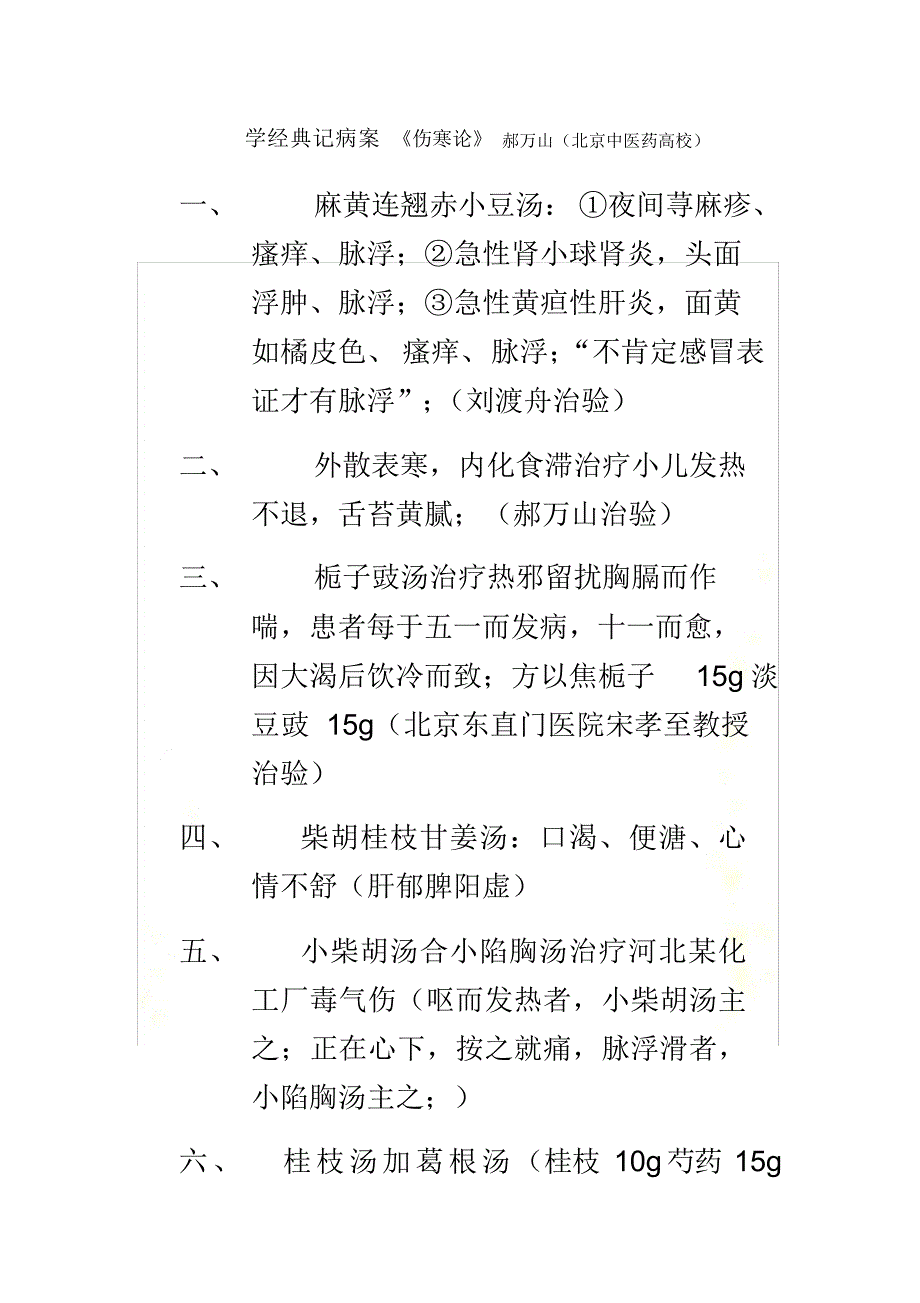 学经典记病案 《伤寒论》 郝万山（北京中医药高校）
一、 麻黄连翘赤小豆汤：①夜间荨麻疹、
瘙痒、脉浮；②急性肾小球肾炎，头面
浮肿、脉浮；③急性黄疸性肝炎，面黄
如橘皮色、 瘙痒、脉浮；“不肯定感冒表
证才有脉浮”；（刘渡舟治验）
二、 外散表寒，内化食滞治疗小儿发热
不退，舌苔黄腻；（郝万山治验）
三、 栀子豉汤治疗热邪留扰胸膈而作
喘，患者每于五一而发病，十一而愈，
因大渴后饮冷而致；方以焦栀子 15g 淡
豆豉 15g（北京东直门医院宋孝至教授
治验）
四、 柴胡桂枝甘姜汤：口渴、便溏、心
情不舒（肝郁脾阳虚）
五、 小柴胡汤合小陷胸汤治疗河北某化
工厂毒气伤（呕而发热者，小柴胡汤主
之；正在心下，按之就痛，脉浮滑者，
小陷胸汤主之；）
六、 桂枝汤加葛根汤（桂枝 10g 芍药 15g